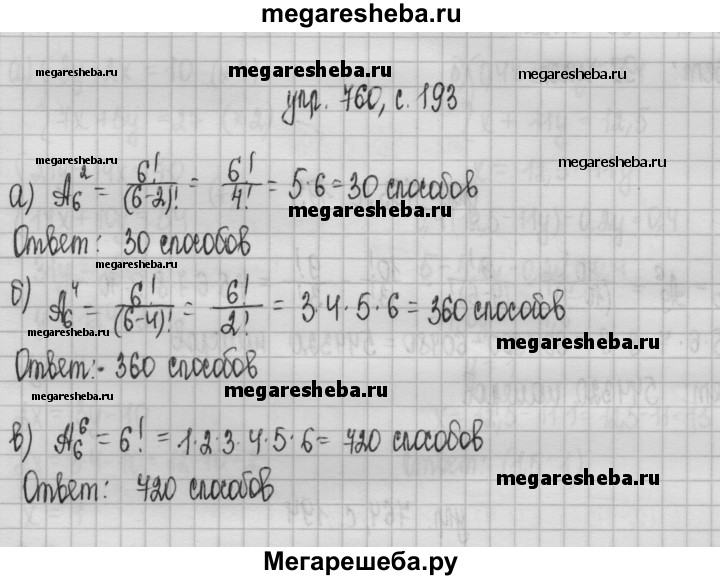 megaresheba.ru
megaresheba.ru megaresheba.ru megaresheba.ru
упр. 760, с. 193
megaresheba.ru megaresheba.ru
а) A₆² = 6!/(6-2)! = 6!/4! = 5·6 = 30 способов
megaresheba.ru
Ответ: 30 способов
megaresheba.ru
б) A₆⁴ = 6!/(6-4)! = 6!/2! = 3·4·5·6 = 360 способов
megaresheba.ru megaresheba.ru
Ответ: 360 способов
megaresheba.ru megaresheba.ru
в) A₆⁶ = 6! = 1·2·3·4·5·6 = 720 способов
Ответ: 720 способов
megaresheba.ru
Мегарешеба.ру